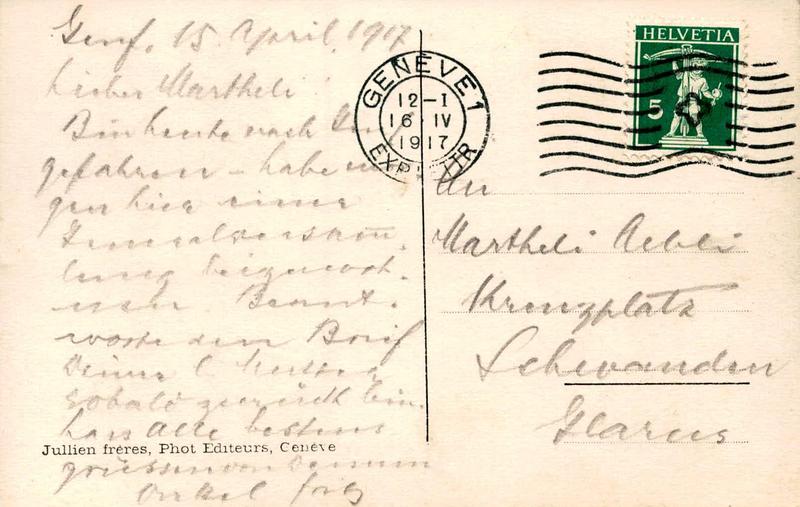 Genf, 15 April 1917
Lieber Martheli!
Bin heute nach Genf
gefahren – habe
gen hier einer
Generalversamm-
lung beigewohnt
Beant-
worte den Brief
Deiner l.
sobald zurück bin.
Alle bestens
grüssen von Deinem
Onkel
Jullien frères, Phot Editeurs, Genève
GENÈVE 1
12–I
16·IV
1917
EXP. LETTR
HELVETIA
5
An
Martheli Aebli
Kreuzplatz
Schwanden
Glarus